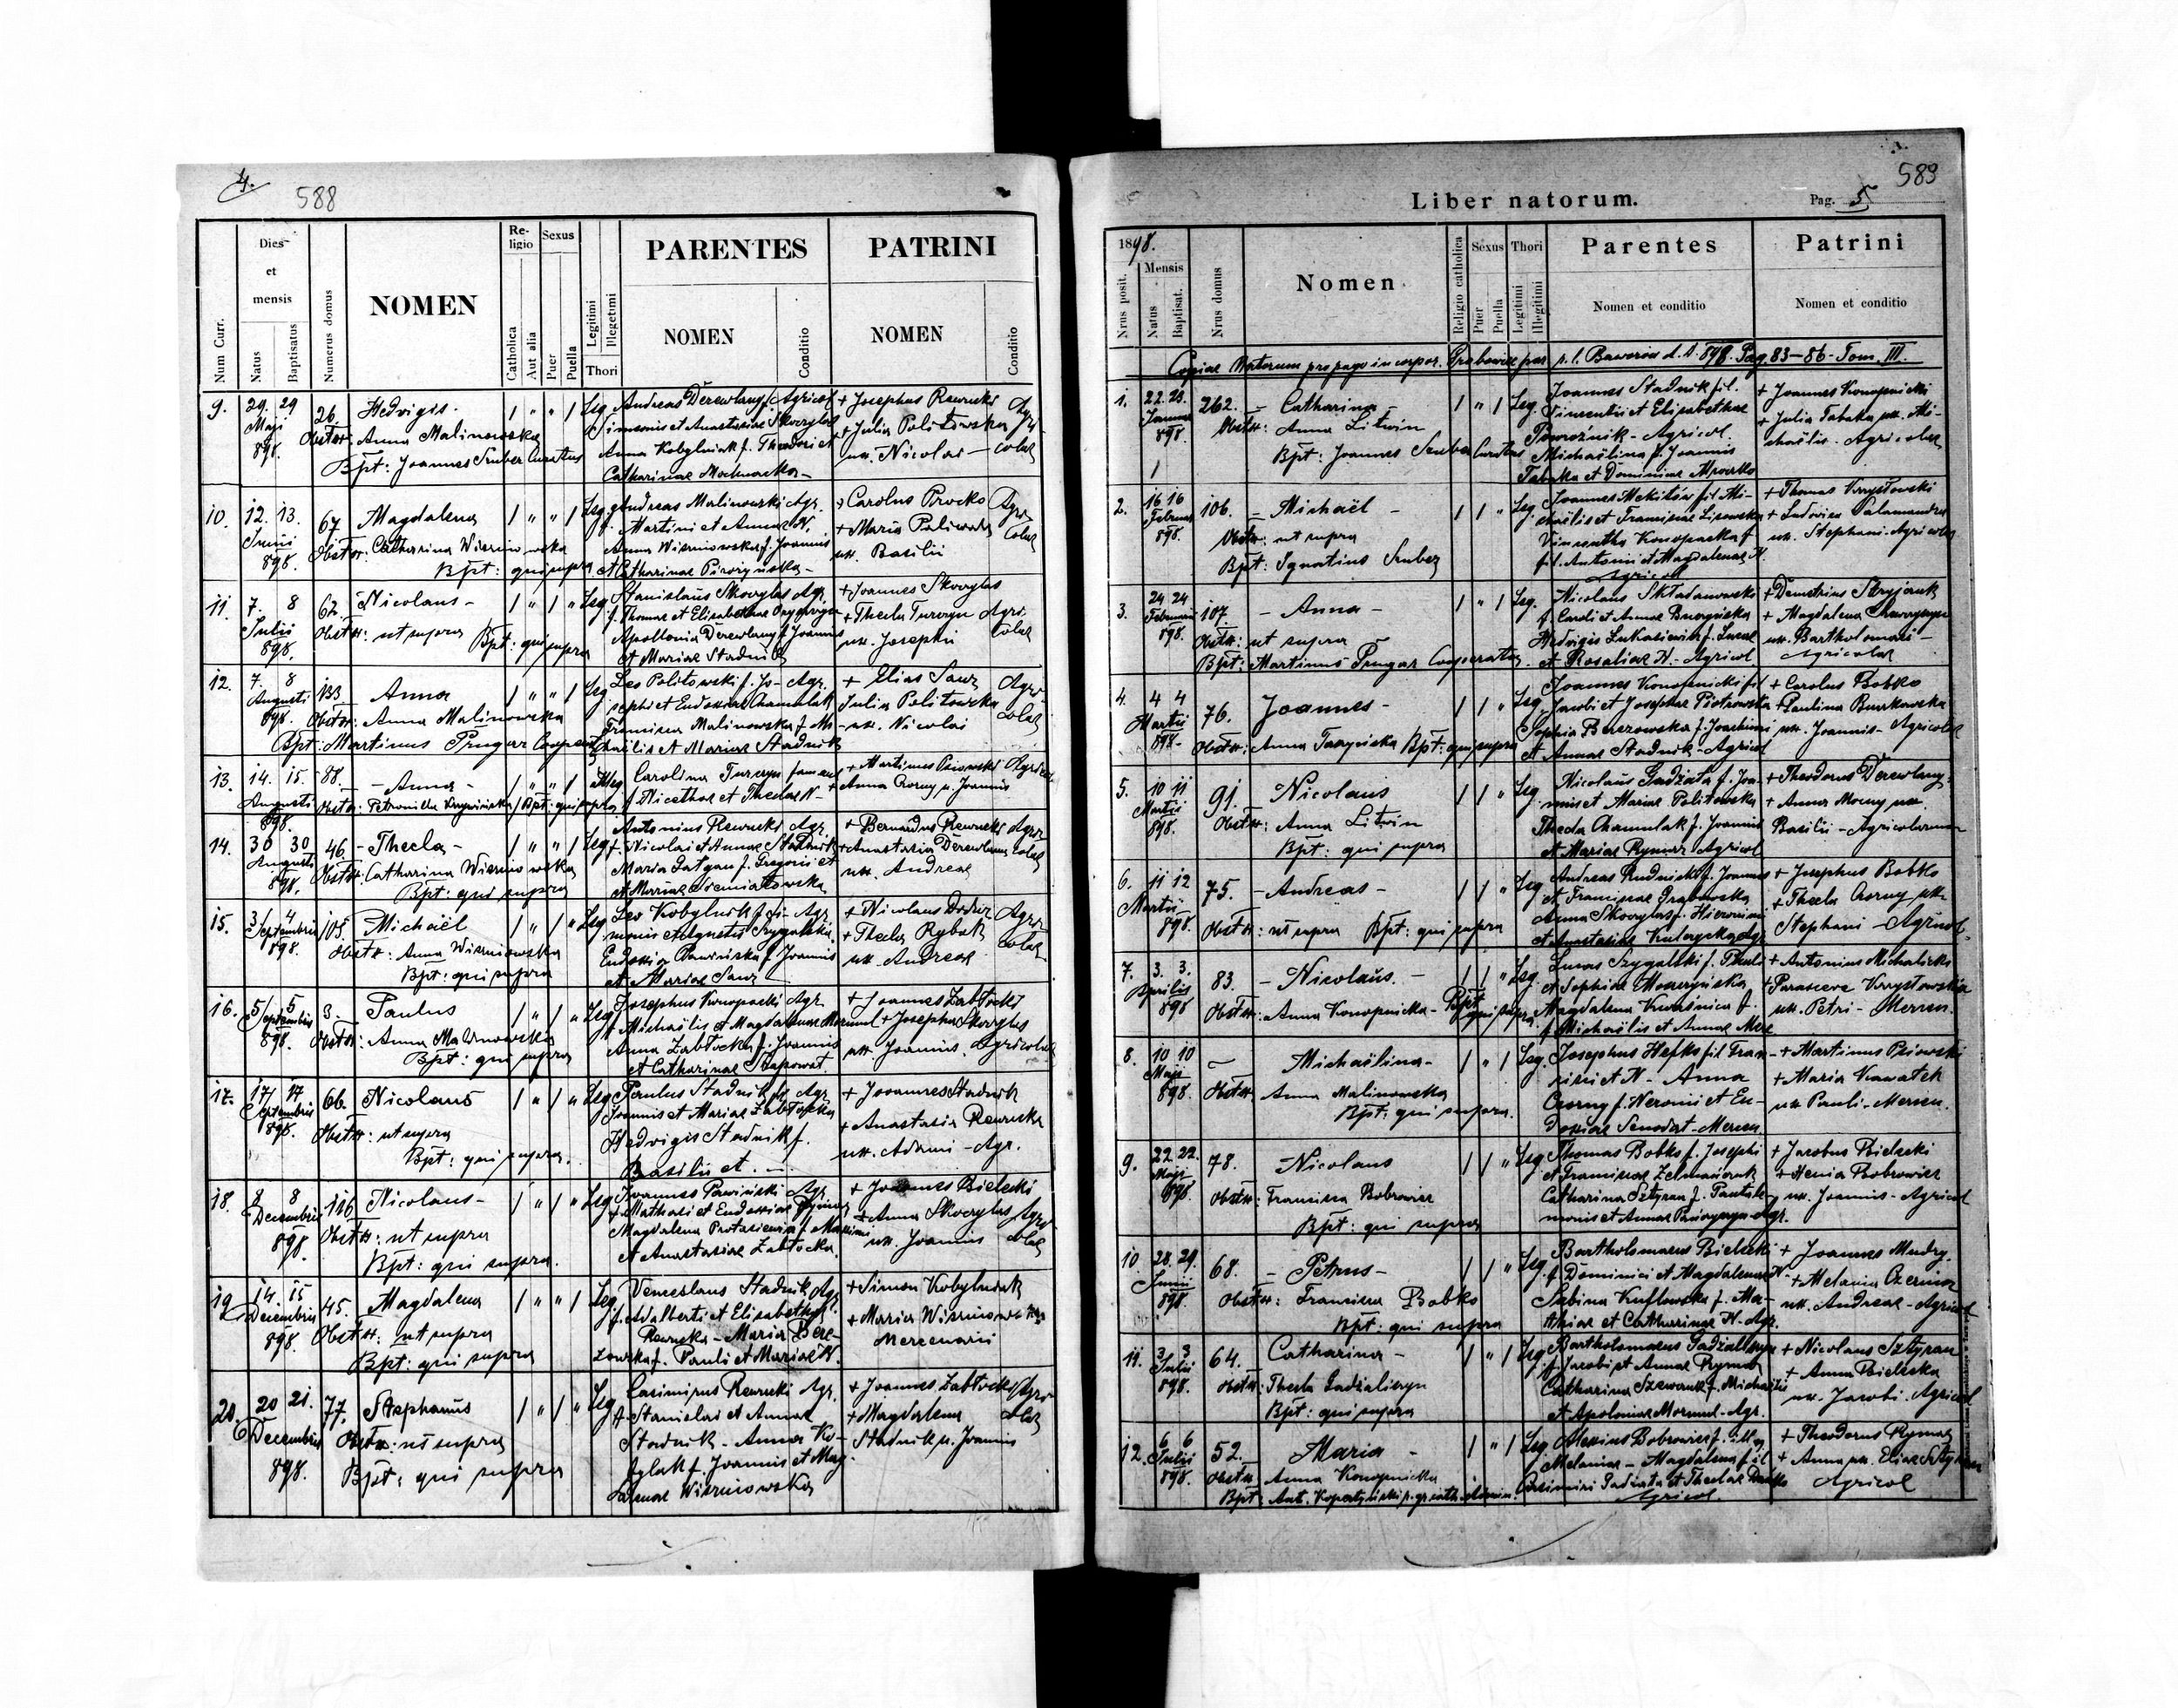 4.
588
Num Curr.
Dies et mensis
Natus
Baptisatus
Numerus domus
NOMEN
Religio
Catholica
Aut alia
Sexus
Puer
Puella
Legitimi
Illegetimi
Thori
PARENTES
NOMEN
Conditio
PATRINI
NOMEN
Conditio
9. 29. 29 Maji 898. 26. Hedvigis. 1 " " 1 Leg
Obstx: Anna Malinowska
Bpt: Joannes Szuber Curatus
Andreas Derewlany f. Agricol
Simeonis et Anastasiae Skocylas
Anna Kobylniak f. Theodori et
Catharinae Mochnacka -
+ Josephus Rewucki Agri-
+ Julia Politowska
ux. Nicolai - colae
10. 12. 13. Junii 898. 67 Magdalena 1 " " 1 Leg.
Obstx: Catharina Wiszniowska
Bpt: qui supra
Andreas Malinowski Agr.
f. Martini et Annae N.
Anna Wiszniowska f. Joannis
et Catharinae
+ Carolus Procko Agri
+ Maria
ux. Basilii colae
11 7. 8 Julii 898. 62. Nicolaus - 1 " 1 " Leg
Obstx: ut supra Bpt: qui supra
Stanislaus Skocylas Agr.
f. Thomae et Elisabethae
Apollonia Derewlany f. Joannis
et Mariae Stadnik
+ Joannes Skocylas
+ Thecla Turczyn Agri
ux. Josephi colae
12. 7. 8 Augusti 898. 133 Anna 1 " " 1 Leg
Obstx: Anna Malinowska
Bpt: Martinus Prugar Cooperat
Leo Politowski f. Jo- Agr.
sephi et Eudoxiae Chamulak
Francisca Malinowska f. Mi-
chaëlis et Mariae Stadnik
+ Elias Sawz Agri-
Julia Politowska colae
- ux. Nicolai
13. 14. 15. Augusti 898. 88. - Anna - 1 " " 1 Illeg
Obstx: Petronilla / Bpt: qui supra
Carolina Turczyn famul
f. Nicethae et Theclae N -
+ Martinus Agricol
+ Anna Czorny u. Joannis
14. 30 30 Augusti 898. 46. - Thecla - 1 " " 1 Leg
Obstx. Catharina Wiszniowska
Bpt: qui supra
Antonius Rewucki Agr.
f. Nicolai et Annae Stadnik
Maria Gatgan f. Gregorii et
et Mariae
+ Bernardus Rewucki Agri
+ Anastasia Derewlana colae
ux. Andreae
15. 3/ 4 Septembris 898. 105. Michaël 1 " 1 " Leg
Obstx: Anna Wiszniowska
Bpt: qui supra
Leo Kobylnik f. Si- Agr
monis et Agnetis Szygalska.
Eudoxia f. Joannis
et Mariae Sawz
+ Nicolaus Agri-
+ Thecla Rybak colae
ux. Andreae
16. 5/ 5 Septembris 898. 3. Paulus 1 " 1 " Leg
Obstx: Anna Malinowska
Bpt: qui supra
Josephus Konopacki Agr.
f. Michaëlis et Magdalenae Mormul
Anna Zabłocka f. Joannis
et Catharinae
+ Joannes Zabłocki
+ Josepha Skocylas
ux. Joannis. Agricolae
17. 17/ 17 Septembris 898. 66. Nicolaus 1 " 1 " Leg
Obstx: ut supra
Bpt: qui supra.
Paulus Stadnik f. Agr
Joannis et Mariae Zabłocka
Hedvigis Stadnik f.
Basilii et . -
+ Joannes Stadnik
+ Anastasia Rewucka
ux. Adami - Agr.
18. 8 8 Decembris 898 116 Nicolaus - 1 " 1 " Leg
Obstx: ut supra
Bpt: qui supra.
Joannes Pawiński Agr
f. Mathaei et Eudoxiae Rymar
Magdalena Protasiewicz f. Maximi
et Anastasiae Zabłocka.
+ Joannes Bielecki
+ Anna Skocylas Agri
ux. Joannis colae
19 14. 15 Decembris 898. 45. Magdalena 1 " " 1 Leg.
Obstx. ut supra
Bpt: qui supra
Venceslaus Stadnik Agr
f. Adalberti et Elisabethae
Rewucka - Maria Bere-
zowska f. Pauli et Mariae N.
+ Simon Kobylniak
+ Maria Wiszniowska
Mercenarii
20. 20 21. Decembris 898. 77. Stephanus 1 " 1 " Leg
Obstx: ut supra
Bpt: qui supra
Casimirus Rewucki Agr.
f. Stanislai et Annae
Stadnik - Anna Ko-
f. Joannis et Mag-
dalenae Wiszniowska
+ Joannes Zabłocki Agri
+ Magdalena colae
Stadnik u. Joannis
589
Liber natorum.
Pag. 5
1898.
Nrus posit.
Mensis
Natus
Baptisat.
Nrus domus
Nomen
Religio catholica
Sexus
Puer
Puella
Thori
Legitimi
Illegitimi
Parentes
Nomen et conditio
Patrini
Nomen et conditio
Copiae Natorum pro pago incorpor. Grabowiec par. r. l. Baworów d. A. 898. Pag. 83-86- Tom. III.
1. 22. 23. Januar 898. 262. - Catharina - 1 " 1 Leg.
Obstx: Anna Litwin
Bpt: Joannes Szuber Curatus
Joannes Stadnik fil.
Vincentii et Elisabethae
Powoźnik - Agricol.
Michaëlina f. Joannis
Tabaka et Dominicae Mroczko
+ Joannes Konopnicki
+ Julia Tabaka ux. Mi-
chaëlis - Agricolae
2. 16 16 Februar 898. 106. - Michaël - 1 1 " Leg.
Obstx: ut supra
Bpt: Ignatius Szuber
Joannes Mekitów fil Mi-
chaëlis et Franciscae Lisowska
Vincentia Konopacka f
fil. Antonii et Magdalenae N.
Agricol
+ Thomas Krystowski
+ Ludovica Salamandra
ux. Stephani. Agricolae
3. 24 24 Februarii 898. 107. - Anna - 1 " 1 Leg.
Obstx: ut supra
Bpt: Martinus Prugar Cooperator
Nicolaus Składanowski
f. Caroli et Annae
Hedvigis Łukasiewicz f. Lucae
et Rosaliae N - Agricol
+ Demetrius Stryjcuk
+ Magdalena
ux. Bartholomaei -
Agricolae
4. 4 4 Martii 898. 76. Joannes - 1 1 " Leg.
Obstx: Anna Bpt: qui supra
Joannes Konopnicki fil
Jacobi et Josephae Piotrowska
Sophia Berezowska f. Joachimi
et Annae Stadnik - Agricol
+ Carolus Bobko
+ Paulina
ux. Joannis - Agricolae
5. 10 11 Martii 898. 91. Nicolaus 1 1 " Leg
Obstx: Anna Litwin
Bpt: qui supra
Nicolaus Gadżała f. Joa-
nnis et Mariae Politowska
Thecla Chamulak f. Joannis
et Mariae Rymar Agricol
+ Theodorus Derewlany
+ Anna ux
Basilii - Agricolarum
6. 11 12 Martii 898. 75. - Andreas - 1 1 " Leg
Obstx: ut supra Bpt: qui supra
Andreas Rudnicki f. Joannis
et Franciscae Grabowska
Anna Skocylas f. Hieronimi
et Anastasiae
+ Josephus Bobko
+ Thecla Czorny ux
Stephani - Agricol.
7. 3. 3. Aprilis 898 83. - Nicolaus. - 1 1 " Leg.
Obstx: Anna Konopnicka - Bpt: qui supra
Lucas Szygalski f. Pauli
et Sophiae
Magdalena Kwaśnica f.
f. Michaëlis et Annae
+ Antonius Michalicki
+ Parasceve Krystowska
ux. Petri - Mercen.
8. 10 10 Maji 898. - Michaëlina - 1 " 1 Leg.
Obstx. Anna Malinowska
Bpt: qui supra.
Josephus Hefko fil Fran-
cisci et N - Anna
Czorny f. Neronii et Eu-
doxiae Senodat - Mercen
+ Martinus
+ Maria Kawałek
ux Pauli - Mercen.
9. 22. 22. Maji 898. 78. Nicolaus 1 1 " Leg
Obstx: Francisca Bobrowicz
Bpt: qui supra
Thomas Bobko f. Josephi
et Franciscae
Catharina Sztyran f. Pantale-
monis et Annae Agr.
+ Jacobus Bielecki
+ Xenia Bobrowicz
ux. Joannis - Agricol
10. 28. 29. Junii 898. 68. - Petrus - 1 1 " Leg.
Obstx: Francisca Bobko
Bpt: qui supra
Bartholomaeus Bielecki
f. Dominici et Magdalenae N.
Sabina f. Ma-
thiae et Catharinae N. Agr.
+ Joannes Mudry.
+ Melania
ux. Andreae - Agricol
11. 3 3 Julii 898. 64. Catharina - 1 " 1 Leg
Obstx: Thecla Gadżaliszyn
Bpt: qui supra
Bartholomaeus
f. Jacobi et Annae Rymar
Catharina f. Michaëlis
et Apoloniae Mormul - Agr.
+ Nicolaus Sztyran
+ Anna Bielecka
ux. Jacobi. Agricol
12. 6 6 Julii 898. 52. Maria - 1 " 1 Leg
Obstx Anna Konopnicka
Bpt: Ant. r. gr. cath.
Alexius Bobrowicz f.
Melaniae - Magdalena fil
Casimiri Gadżała et Theclae
Agricol.
+ Theodorus Rymar
+ Anna ux. Eliae Sztyran
Agricol